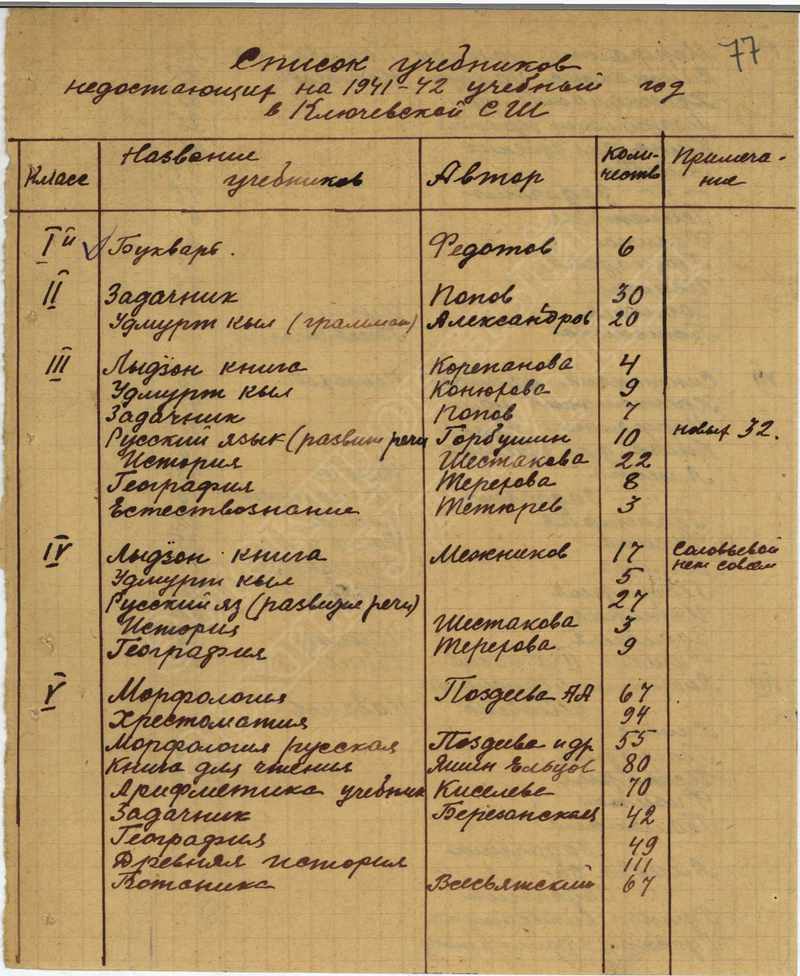 77
Список учебников
недостающих на 1941-42 учебный год
в Ключевской СШ
Класс Название учебников Автор Количество Примечание
I й Букварь. Федотов 6
II Задачник Попов 30
Удмурт кыл (граммат) Александров 20
III Лыдӟон книга Корепанова 4
Удмурт кыл Конюхова 9
Задачник Попов 7
Русский язык (развит речи Горбушин 10 новых 32.
История Шестакова 22
География Терехова 8
Естествознание Тетюрев 3
IV Лыдӟон книга Межников 17 Соловьевой
нет совсем
Удмурт кыл 5
Русский яз (развитие речи) 27
История Шестакова 3
География Терехова 9
V Морфология Поздеева АА 67
Хрестоматия 94
Морфология русская Поздеева и др 55
Книга для чтения Яшин Ельцов 80
Арифметика учебник Киселева 70
Задачник Березанская 42
География 49
Древняя история 111
Ботаника Всесвятский 67